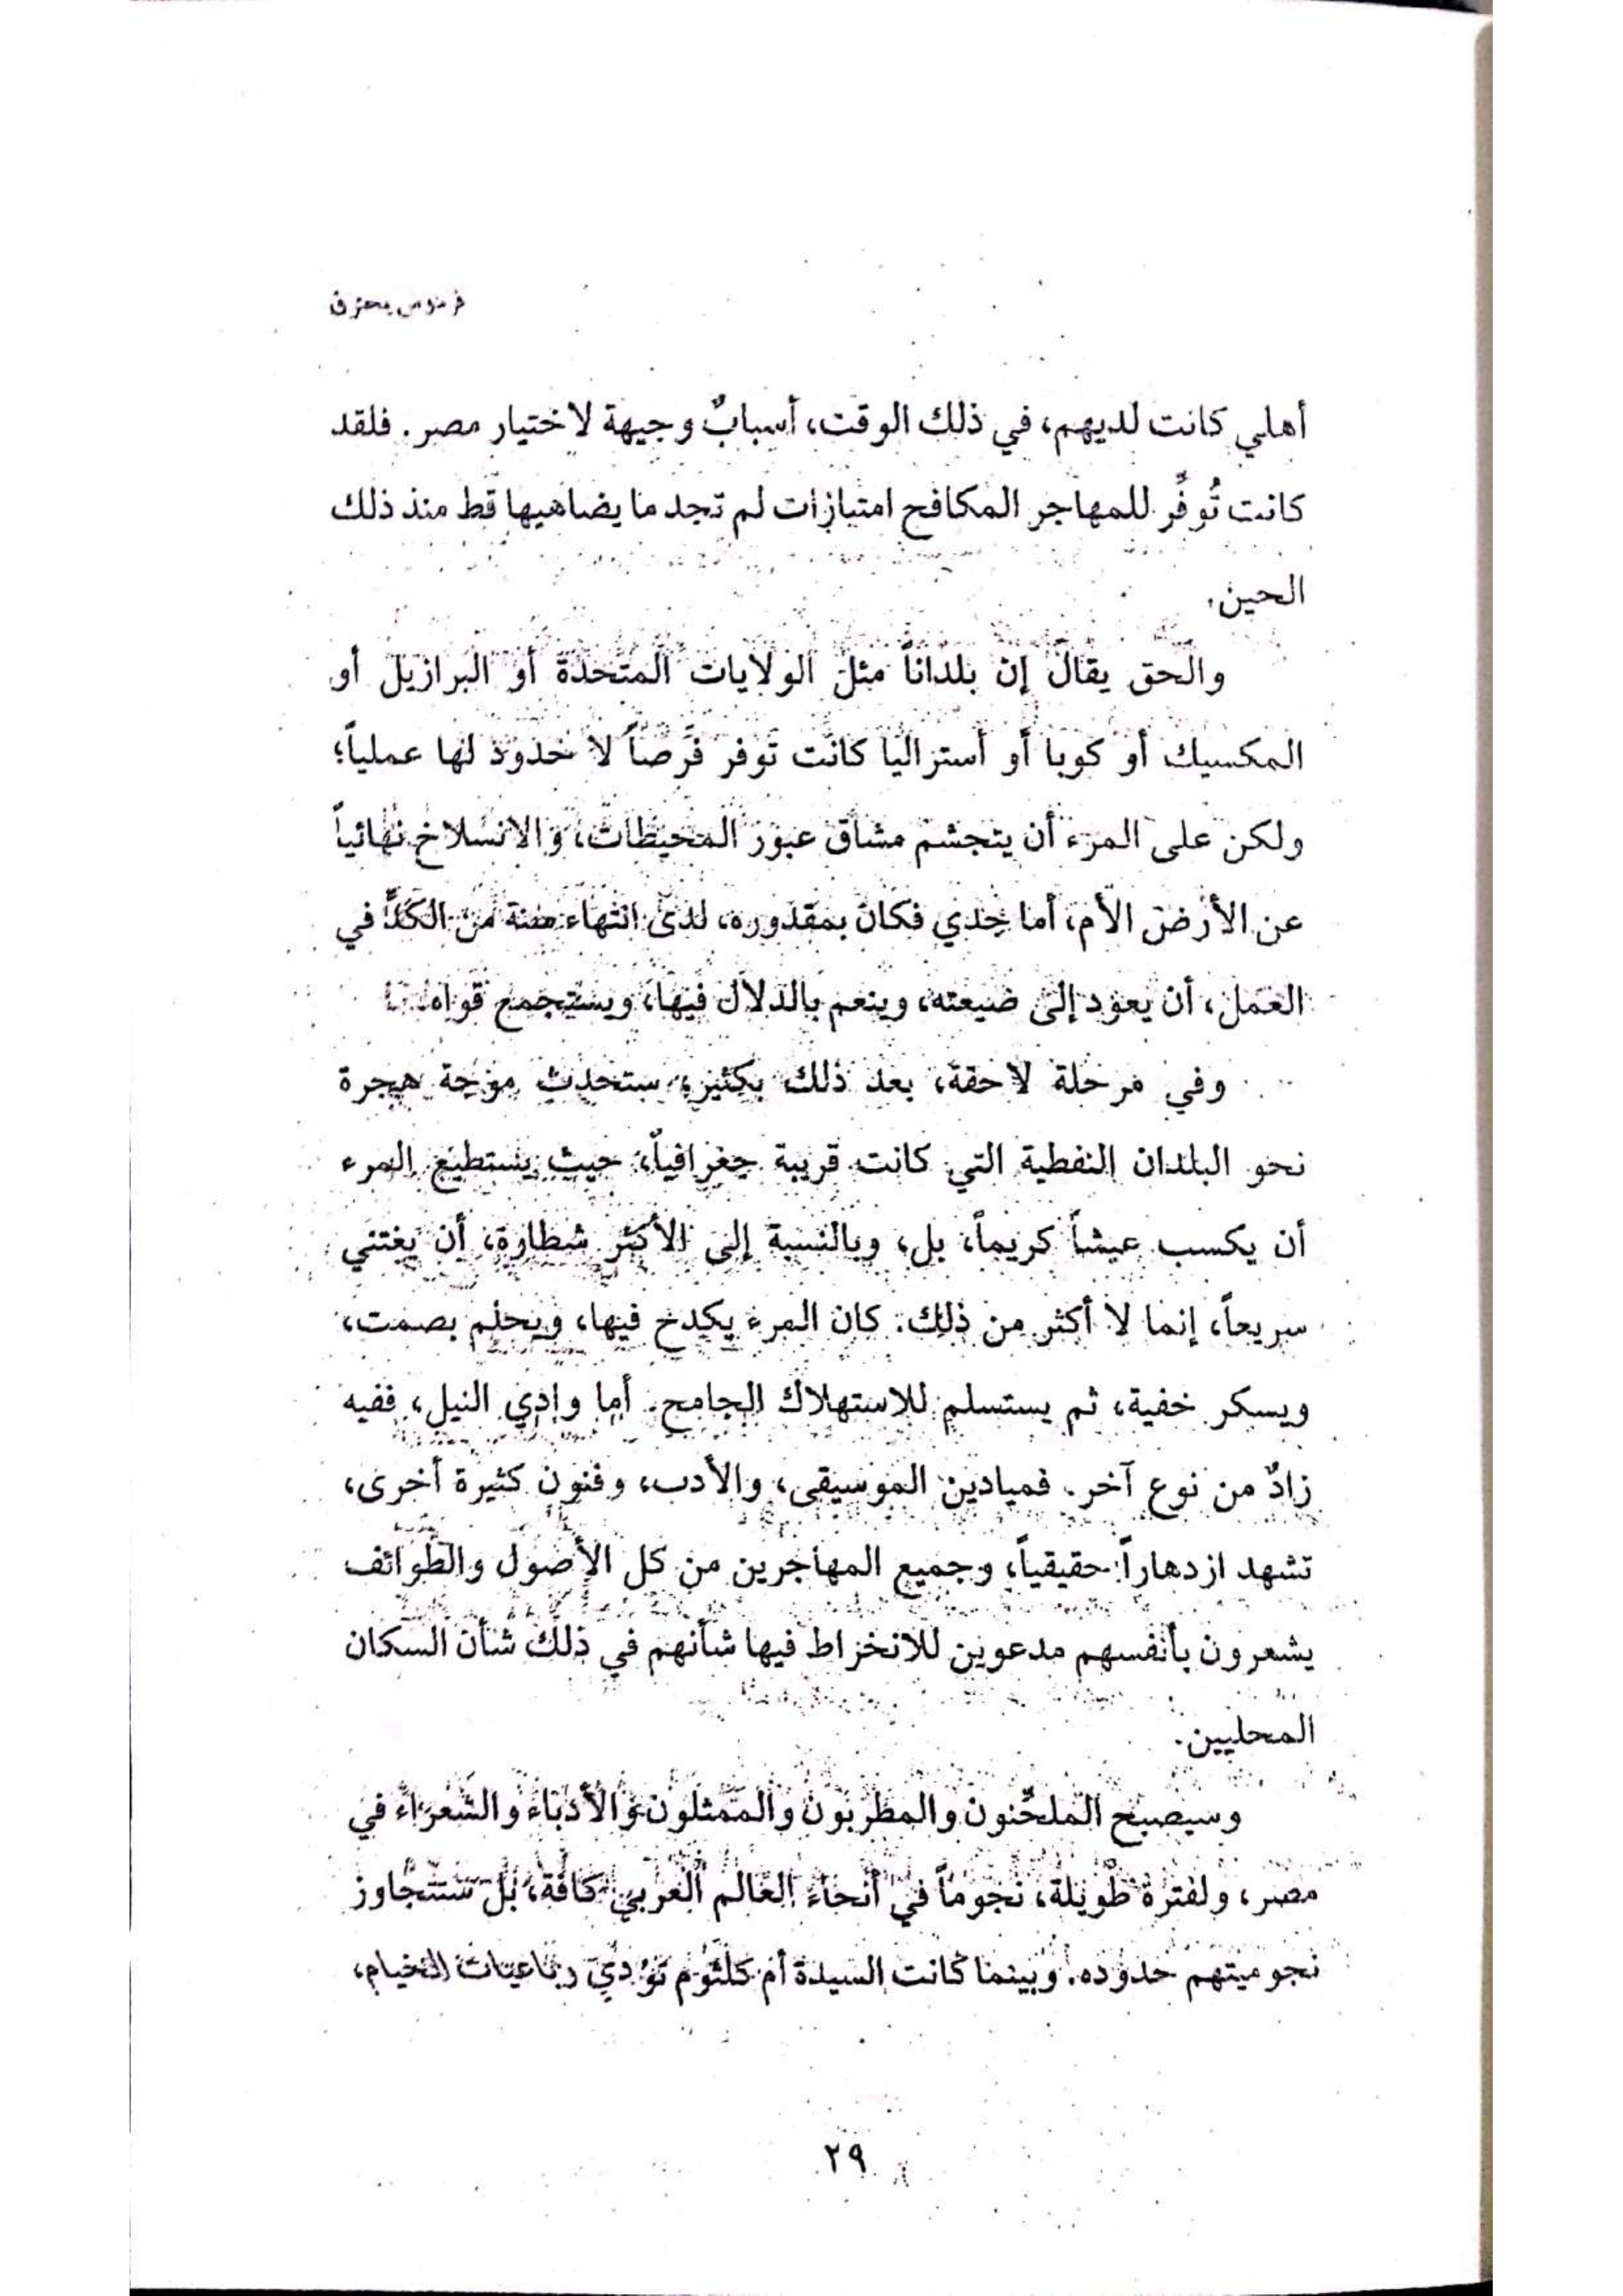 فردوس يحترق
أهلي كانت لديهم، في ذلك الوقت، أسبابٌ وجيهة لاختيار مصر. فلقد
كانت تُوفِّر للمهاجر المكافح امتيازات لم تجد ما يضاهيها قط منذ ذلك
الحين.
والحق يقال إن بلداناً مثل الولايات المتحدة أو البرازيل أو
المكسيك أو كوبا أو أستراليا كانت توفر فرصاً لا حدود لها عملياً؛
ولكن على المرء أن يتجشم مشاق عبور المحيطات، والانسلاخ نهائياً
عن الأرض الأم، أما جدي فكان بمقدوره، لدى انتهاء سنة من الكدّ في
العمل، أن يعود إلى ضيعته، وينعم بالدلال فيها، ويستجمع قواه.
وفي مرحلة لاحقة، بعد ذلك بكثير، ستحدث موجة هجرة
نحو البلدان النفطية التي كانت قريبة جغرافياً، حيث يستطيع المرء
أن يكسب عيشاً كريماً، بل، وبالنسبة إلى الأكثر شطارة، أن يغتني
سريعاً، إنما لا أكثر من ذلك. كان المرء يكدح فيها، ويحلم بصمت،
ويسكر خفية، ثم يستسلم للاستهلاك الجامح. أما وادي النيل، ففيه
زادٌ من نوع آخر. فميادين الموسيقى، والأدب، وفنون كثيرة أخرى،
تشهد ازدهاراً حقيقياً، وجميع المهاجرين من كل الأصول والطوائف
يشعرون بأنفسهم مدعوين للانخراط فيها شأنهم في ذلك شأن السكان
المحليين.
وسيصبح الملحّنون والمطربون والممثلون والأدباء والشعراء في
مصر، ولفترة طويلة، نجوماً في أنحاء العالم العربي كافة، بل ستتجاوز
نجوميتهم حدوده. وبينما كانت السيدة أم كلثوم تؤدي رباعيات الخيام،
٢٩